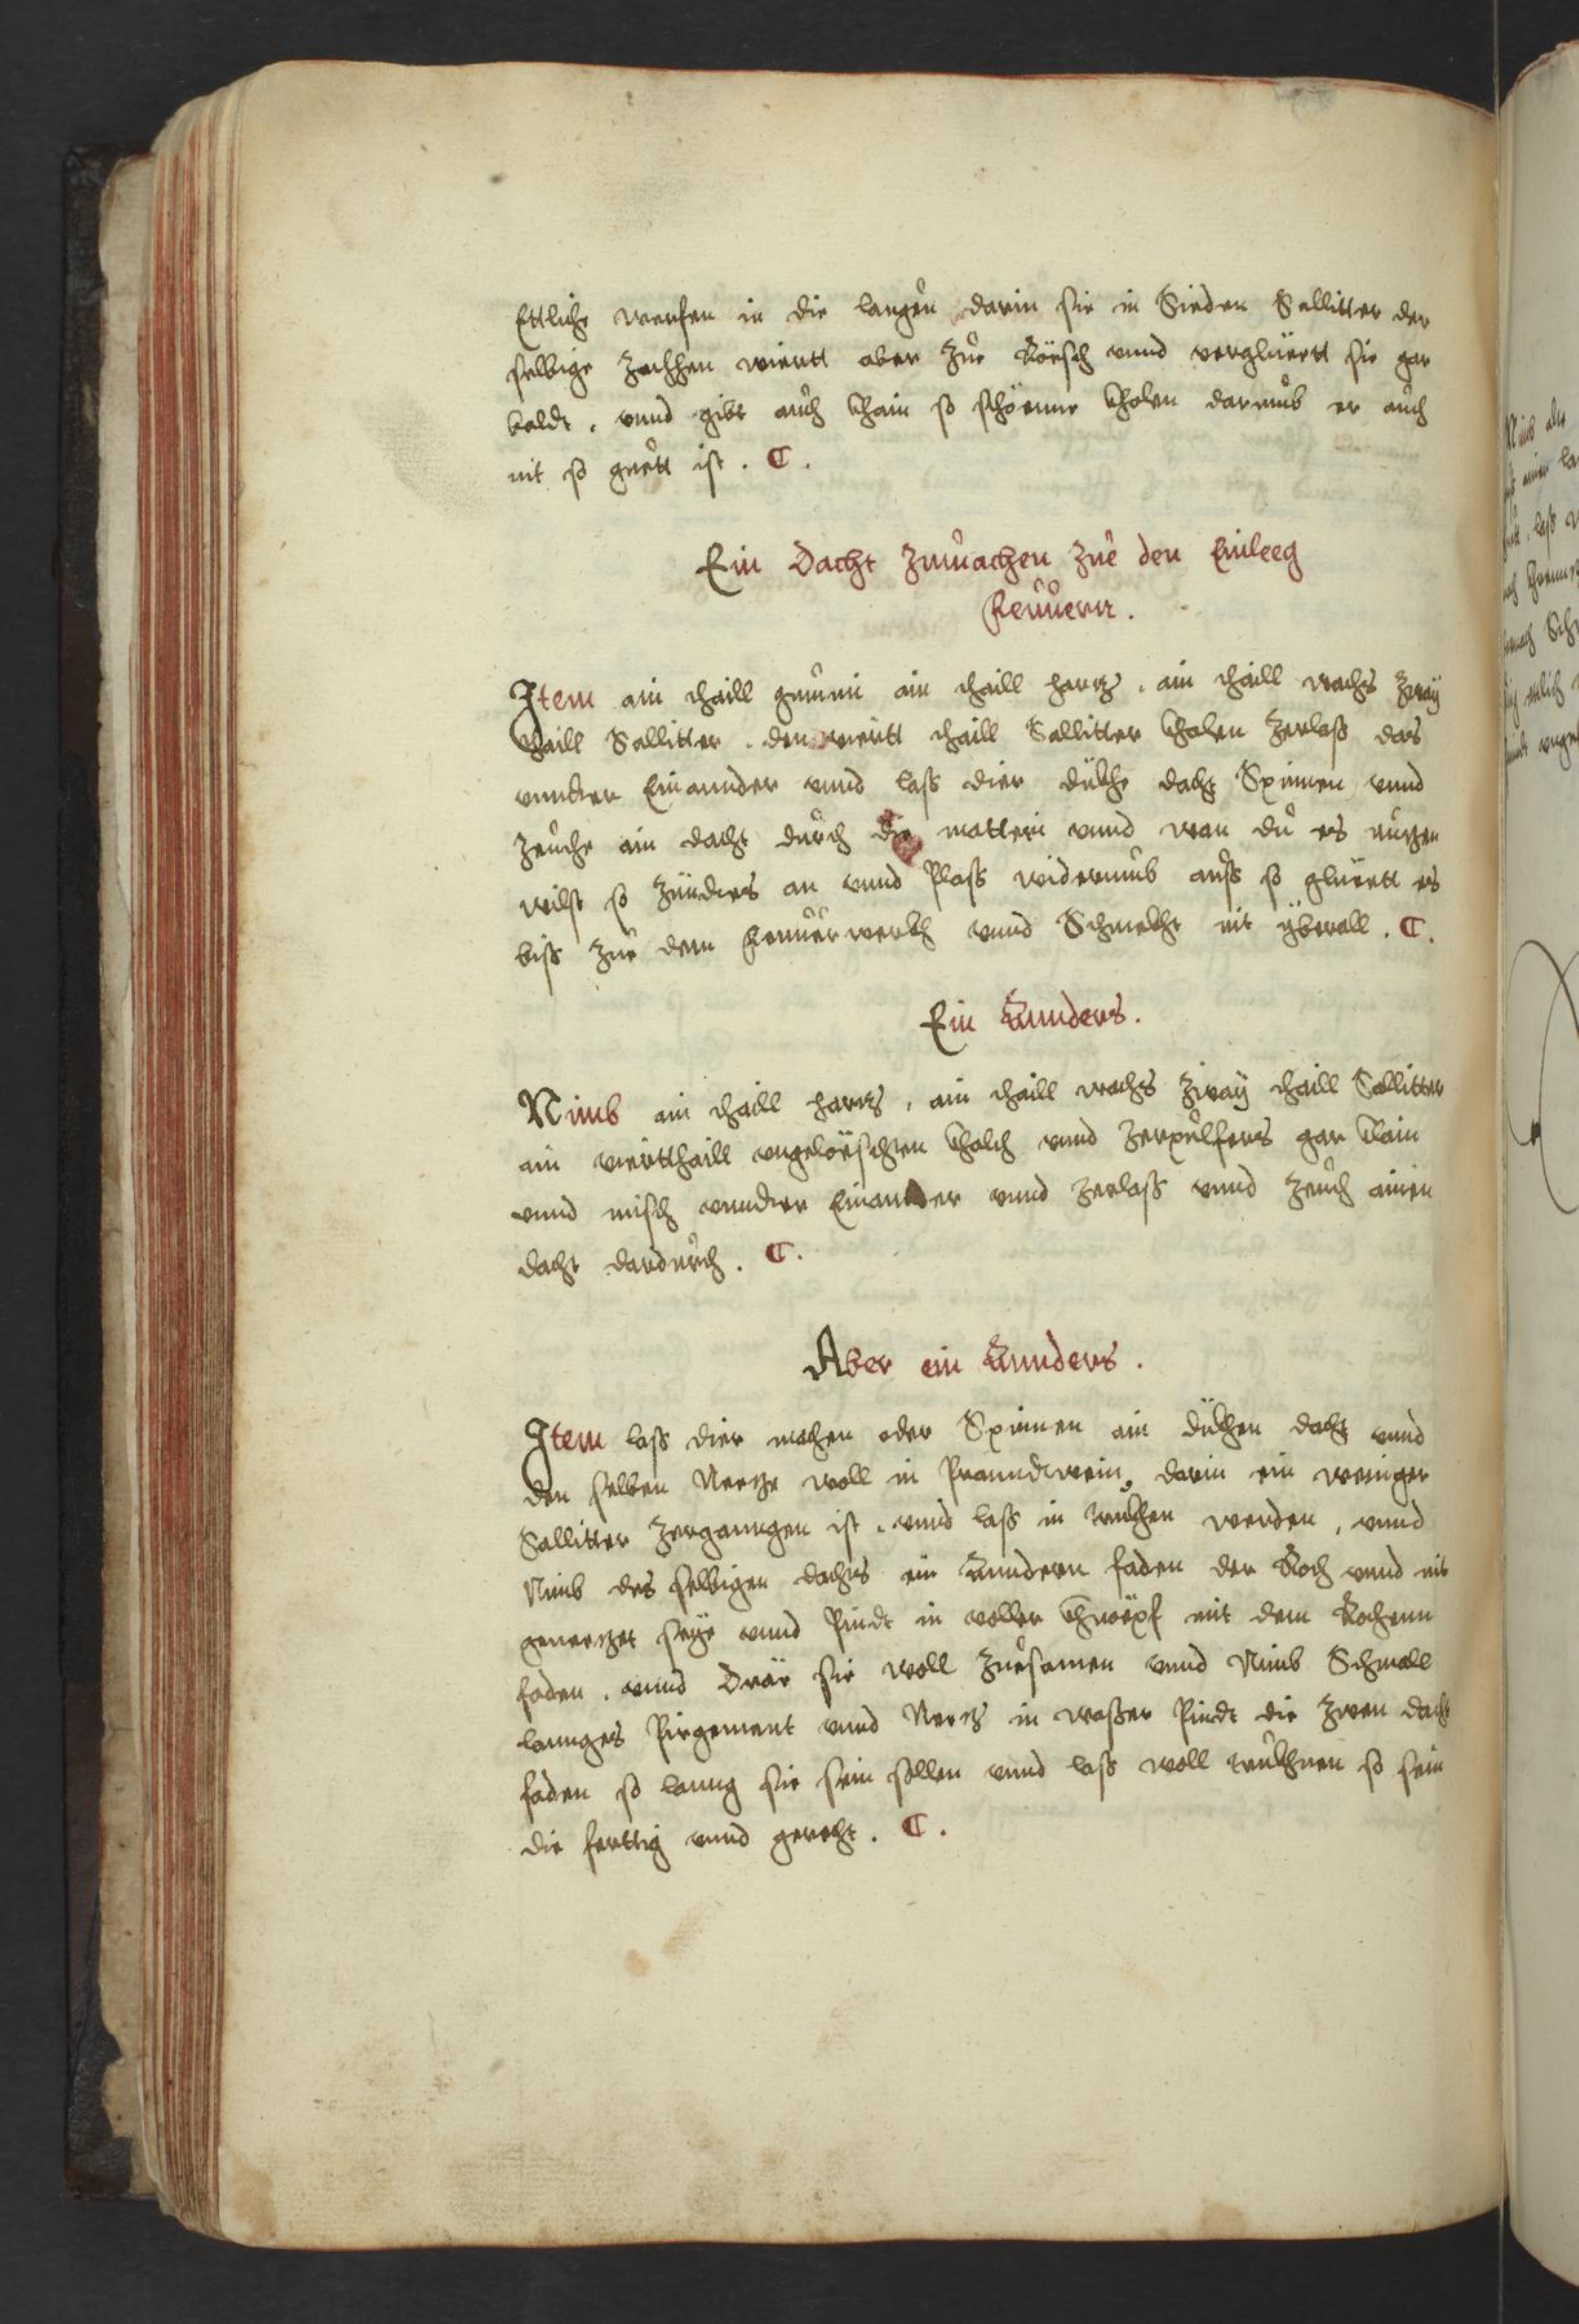 Ettliche werfen in die laugen darin sie in Sieden Sallitter der
selbige zachhen wiertt aber zue Rösch vnnd verglüertt sie gar
baldt, vnnd gibt auch khain so schöenne kholen darumb er auch
nit so guett ist. C.
Ein Dacht zmachen zue den Einleeg
feuuern.
Item ain thaill gummi ain thaill hartz, ain thaill wachs zway
thaill Sallitter, den viertt thaill Sallitter kholen zerlaß das
vnnder Einannder vnnd lass dier dükhe dacht Spinnen vnnd
zeuche ain dacht durch die matteri vnnd wan du es nutzen
wilst so zündts an vnnd Plass widerumb auss so glüertt es
biss zue dem feuuerwerkh vnnd Schmekht nit yberall. C.
Ein Annders.
Nimb ain thaill hartz, ain thaill wachs zway thaill Sallitter
ain viertthaill vngelöeschten khalch vnnd zerpulfers gar klain
vnnd misch vnnder Einander vnnd zerlaß vnnd zeuch ainen
dacht dardurch. C.
Aber ein Annders.
Item lass dier machen oder Spinnen ain dükhen dacht vnnd
den selben Netze woll in Pranndtwein, darin ein weniger
Sallitter zerganngen ist, vnnd lass in trukhen werden, vnnd
Nimb des selbigen dachts ein Anndern faden der Roch vnnd nit
genetzet seye vnnd Pindt in voller khnöepf mit dem Rochenn
faden, vnnd Dräe sie woll zuesamen vnnd Nimb Schmall
lannges Pirgement vnnd Netz in waßer Pindt die zwen dacht
faden so lanng sie sein sollen vnnd lass woll trukhnen so sein
die ferttig vnnd gerecht. C.